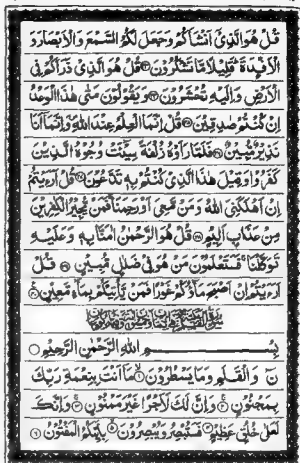 قُلْ هُوَ الَّذِىْٓ اَنْشَاَكُمْ وَجَعَلَ لَكُمُ السَّمْعَ وَالْاَبْصَارَ وَ
الْاَفْـِٕدَةَ ؕ قَلِيْلًا مَّا تَشْكُرُوْنَ ۝۲۳ قُلْ هُوَ الَّذِىْ ذَرَاَكُمْ فِى
الْاَرْضِ وَاِلَيْهِ تُحْشَرُوْنَ ۝۲۴ وَيَقُوْلُوْنَ مَتٰى هٰذَا الْوَعْدُ
اِنْ كُنْتُمْ صٰدِقِيْنَ ۝۲۵ قُلْ اِنَّمَا الْعِلْمُ عِنْدَ اللّٰهِ وَاِنَّمَاۤ اَنَا
نَذِيْرٌ مُّبِيْنٌ ۝۲۶ فَلَمَّا رَاَوْهُ زُلْفَةً سِيْٓـَٔتْ وُجُوْهُ الَّذِيْنَ
كَفَرُوْا وَقِيْلَ هٰذَا الَّذِىْ كُنْتُمْ بِهٖ تَدَّعُوْنَ ۝۲۷ قُلْ اَرَءَيْتُمْ
اِنْ اَهْلَكَنِىَ اللّٰهُ وَمَنْ مَّعِىَ اَوْ رَحِمَنَا ۙ فَمَنْ يُّجِيْرُ الْكٰفِرِيْنَ
مِنْ عَذَابٍ اَلِيْمٍ ۝۲۸ قُلْ هُوَ الرَّحْمٰنُ اٰمَنَّا بِهٖ وَعَلَيْهِ
تَوَكَّلْنَا ۚ فَسَتَعْلَمُوْنَ مَنْ هُوَ فِىْ ضَلٰلٍ مُّبِيْنٍ ۝۲۹ قُلْ
اَرَءَيْتُمْ اِنْ اَصْبَحَ مَآؤُكُمْ غَوْرًا فَمَنْ يَّاْتِيْكُمْ بِمَآءٍ مَّعِيْنٍ ۝۳۰
بِسْمِ اللّٰهِ الرَّحْمٰنِ الرَّحِيْمِ
نٓ وَالْقَلَمِ وَمَا يَسْطُرُوْنَ ۝۱ مَاۤ اَنْتَ بِنِعْمَةِ رَبِّكَ
بِمَجْنُوْنٍ ۝۲ وَاِنَّ لَكَ لَاَجْرًا غَيْرَ مَمْنُوْنٍ ۝۳ وَاِنَّكَ
لَعَلٰى خُلُقٍ عَظِيْمٍ ۝۴ فَسَتُبْصِرُ وَيُبْصِرُوْنَ ۝۵ بِاَيِّىكُمُ الْمَفْتُوْنُ ۝۶